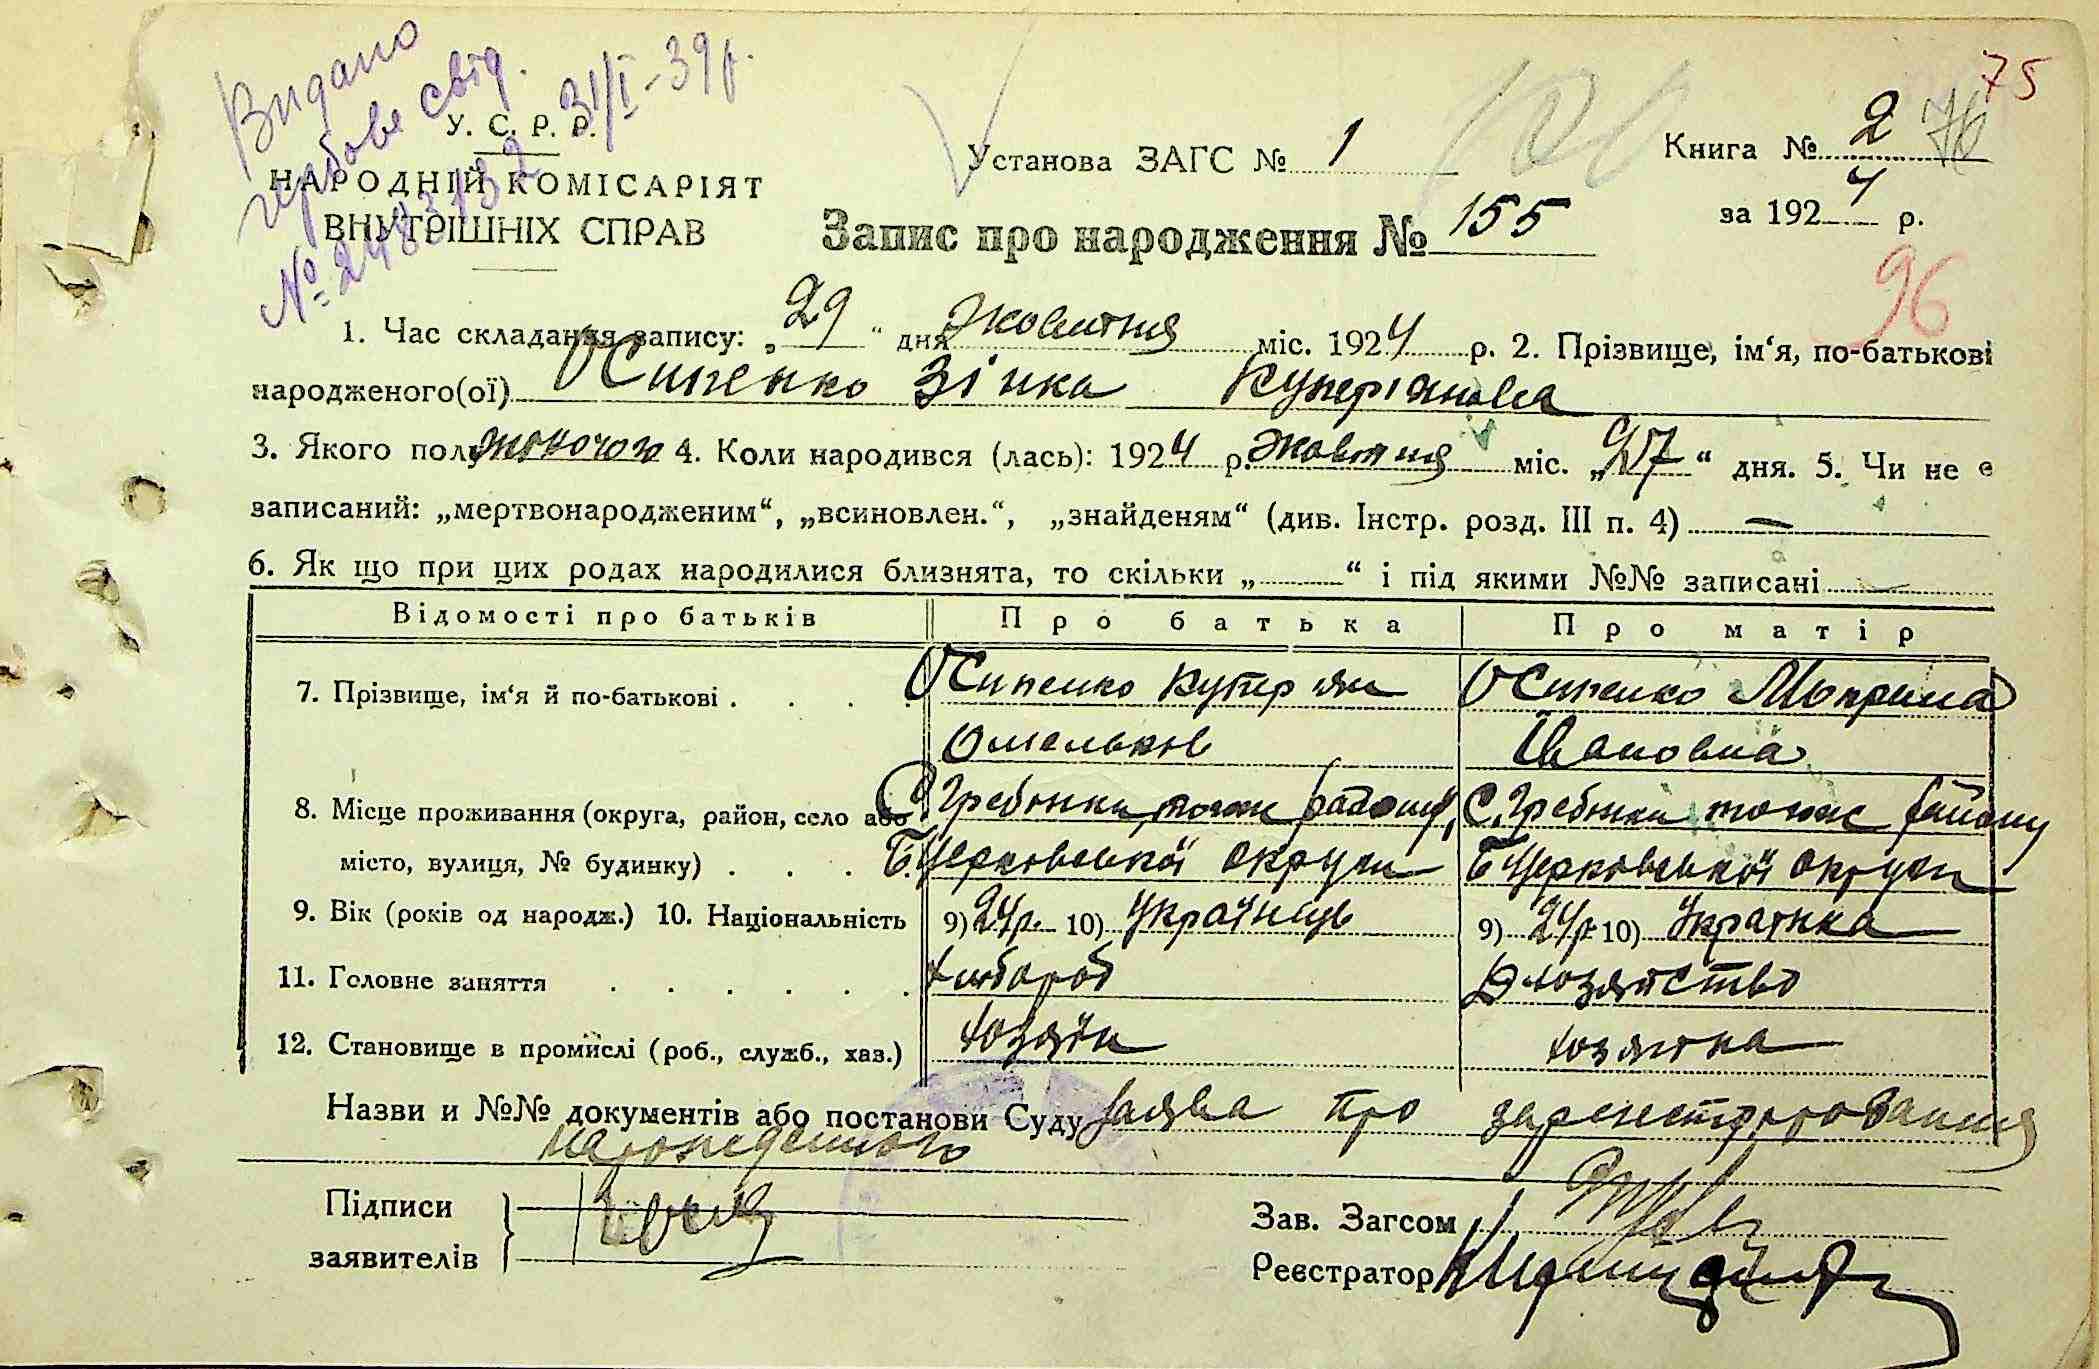 75
Видано
гербове свід.
31/I-39р.
У. С. Р. Р.
НАРОДНІЙ КОМІСАРІЯТ
ВНУТРІШНІХ СПРАВ
Установа ЗАГС № 1
Книга № 2 76
за 1924 р.
Запис про народження № 155
96
1. Час складання запису: „29“ дня жовтня міс. 1924 р. 2. Прізвище, ім‘я, по-батькові
народженого(ої) Осипенко Зінка Куперіянова
3. Якого полу жоночого 4. Коли народився (лась): 1924 р. жовтня міс. „27“ дня. 5. Чи не є
записаний: „мертвонародженим“, „всиновлен.“, „знайденям“ (див. Інстр. розд. III п. 4) —
6. Як що при цих родах народилися близнята, то скільки „ “ і під якими №№ записані —
Відомості про батьків Про батька Про матір
7. Прізвище, ім‘я й по-батькові . Осипенко Куперіян Осипенко Мокрина
Омельков Івановна
8. Місце проживання (округа, район, село або С. Гребонки тож району, С. Гребонки тож району
місто, вулиця, № будинку) . . . Б.Церковської округи Б Церковської округи
9. Вік (років од народж.) 10. Національність 9) 24р. 10) Українець 9) 24р 10) Українка
11. Головне заняття . . . . . . хлібороб хозяйство
12. Становище в промислі (роб., служб., хаз.) хозяїн хозяйка
Назви и №№ документів або постанови Суду Заява про зарейстровання
народженого
Підписи
заявителів
Зав. Загсом
Реєстратор